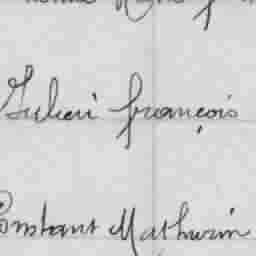 Julien françois
Constant Mathurin